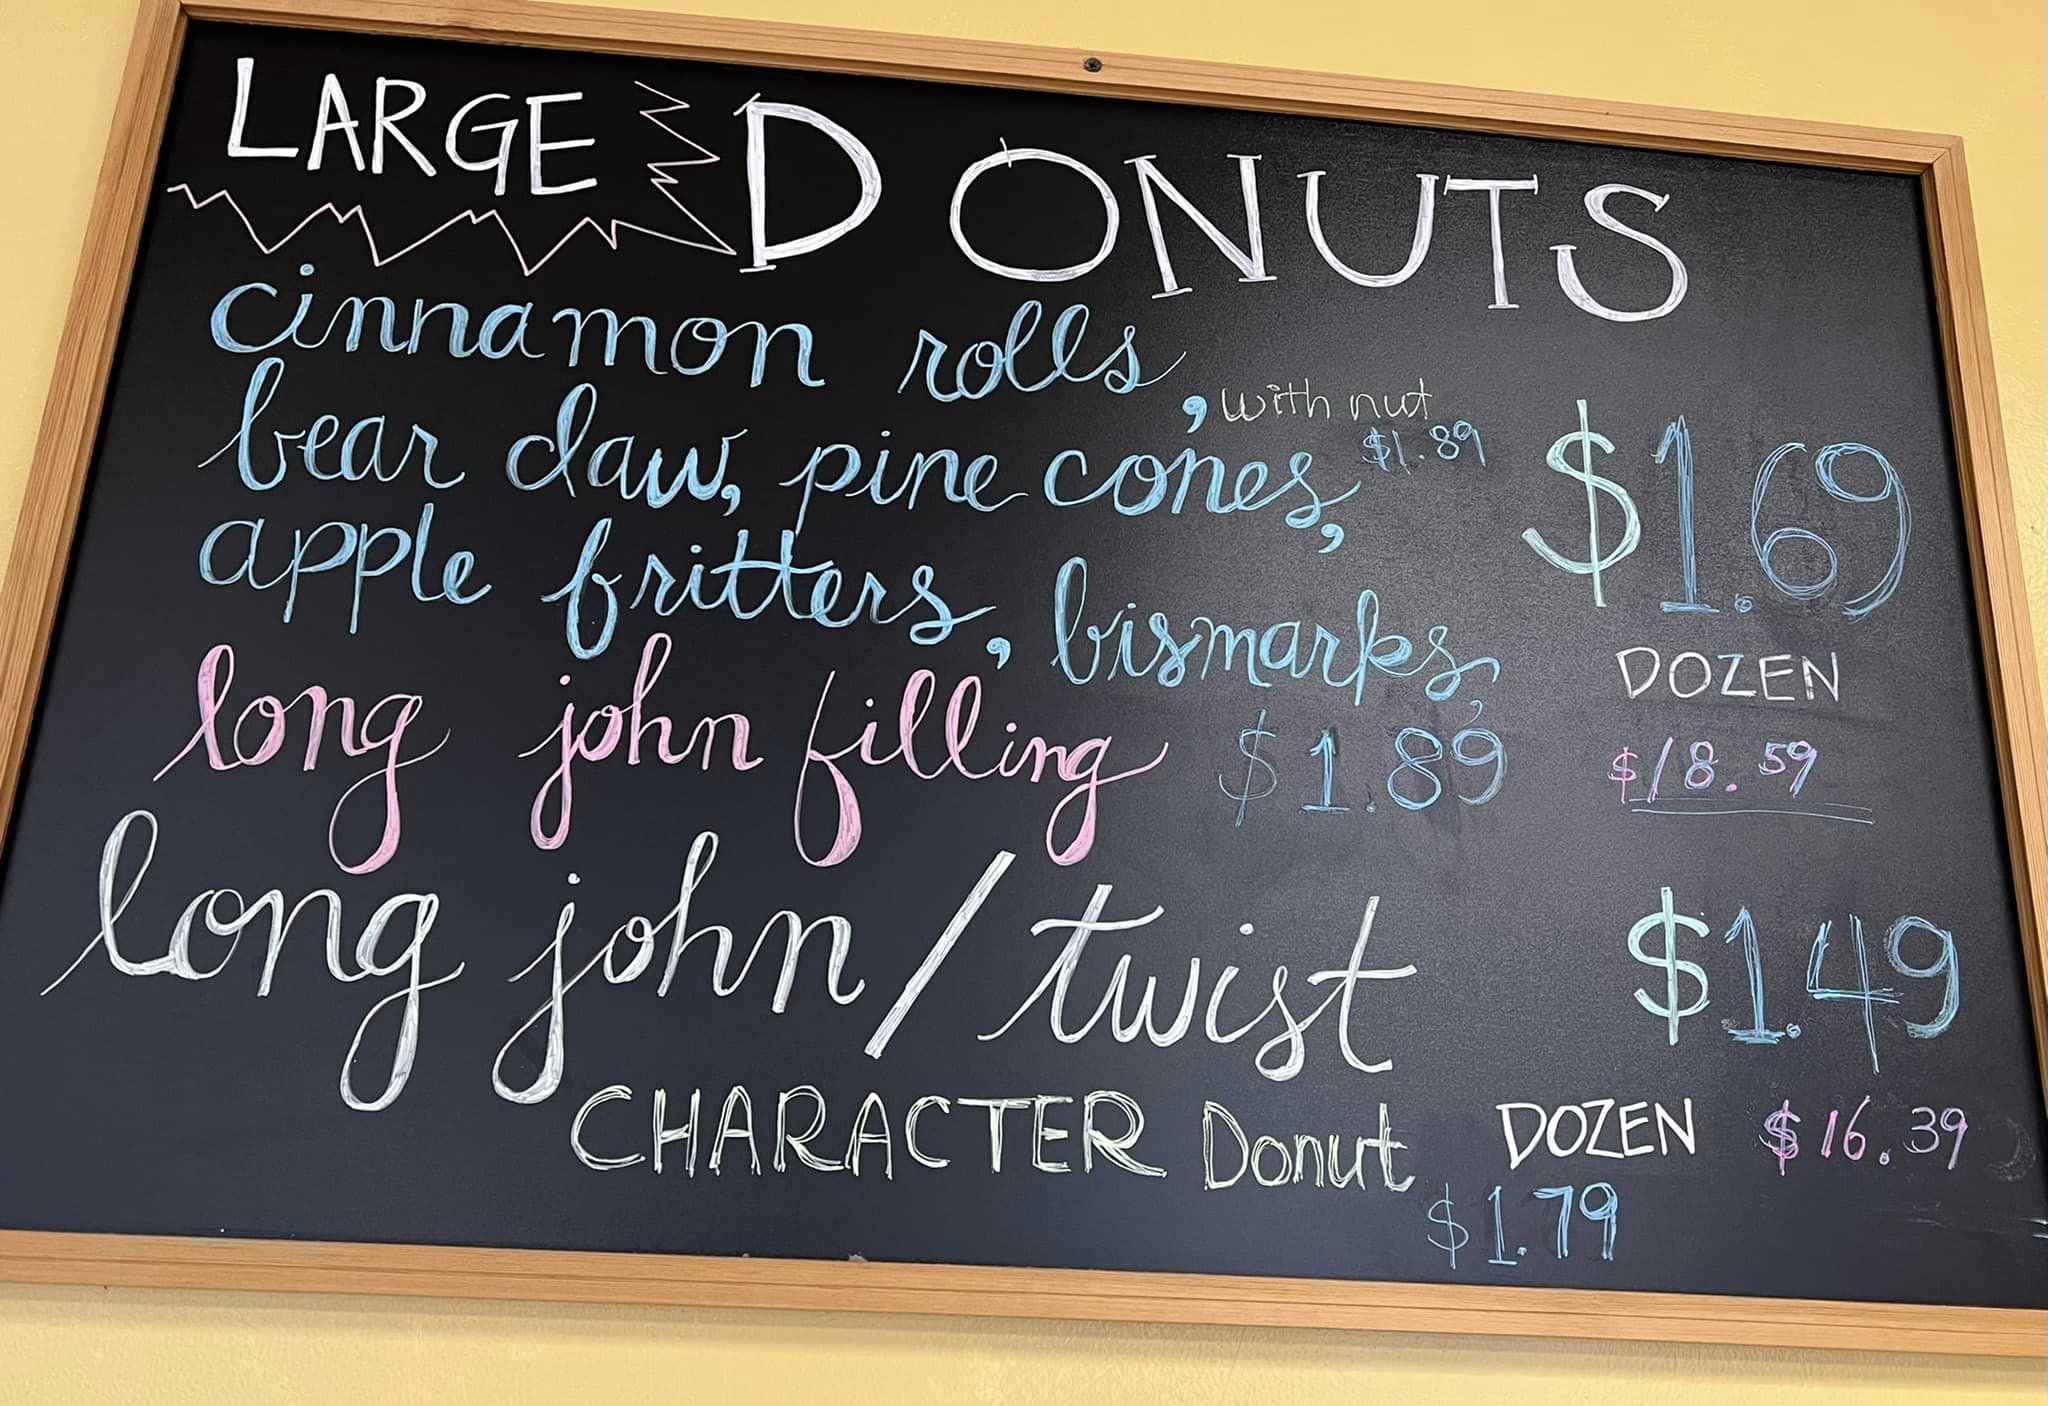 LARGE DONUTS
cinnamon rolls,
, with nut
$1.89
bear claw, pine cones,
$1.69
apple fritters, bismarks,
DOZEN
$18.59
long john filling $1.89
long john/twist $1.49
CHARACTER Donut $1.79
DOZEN $16.39